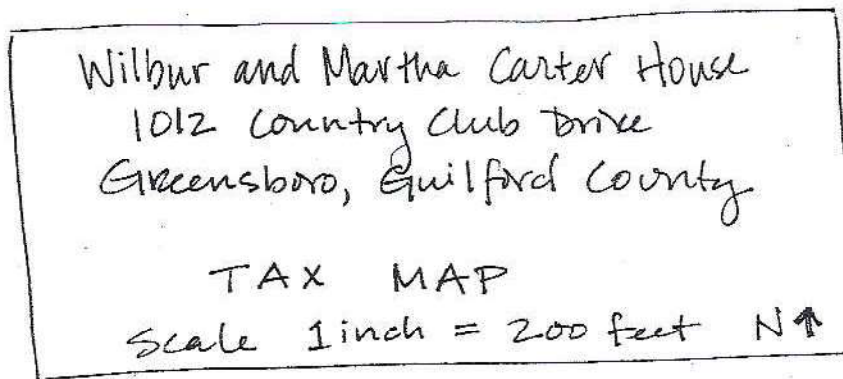 Wilbur and Martha Carter House
1012 Country Club Drive
Greensboro, Guilford County
TAX MAP
Scale 1 inch = 200 feet N↑